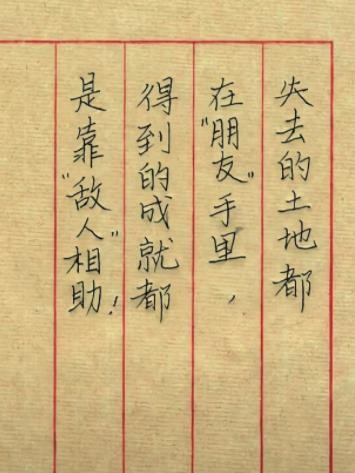 失去的土地都
在“朋友”手里，
得到的成就都
是靠“敌人”相助！